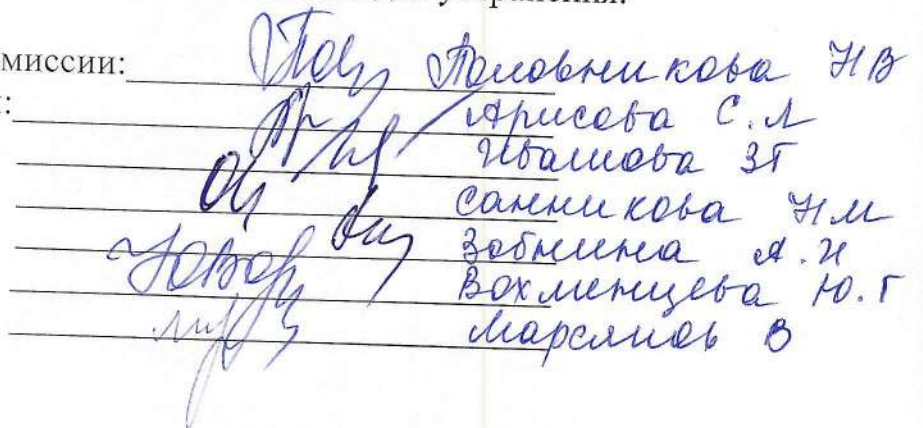 миссии: Половникова Н В
: Арисова С. Л
Ивашова З Г
Санникова Н М
Зобнина А. Н
Вохменцева Ю. Г
В